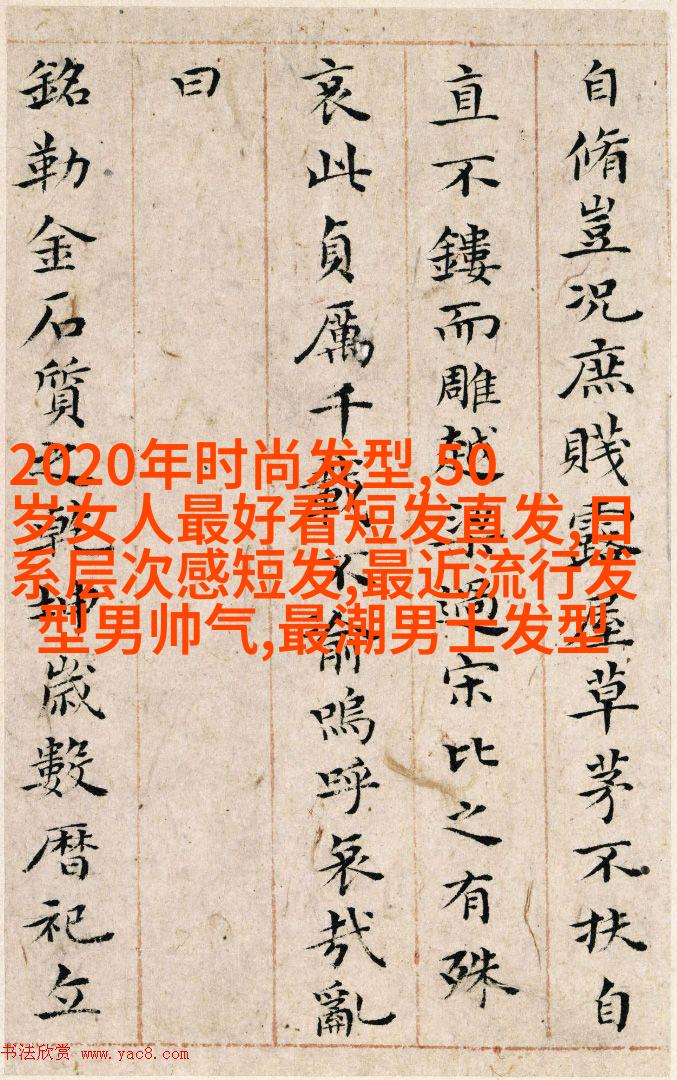 自脩豈况庶賤露屋草茅不扶自
直不鏤而雕越梁過宋比之有殊
哀此貞厲千載不渝嗚呼哀哉亂
曰
銘勒金石質之乾坤歲數曆祀立
2020年时尚发型,50
岁女人最好看短发直发,日
系层次感短发,最近流行发
型男帅气,最潮男士发型
书法欣赏 www.yac8.com